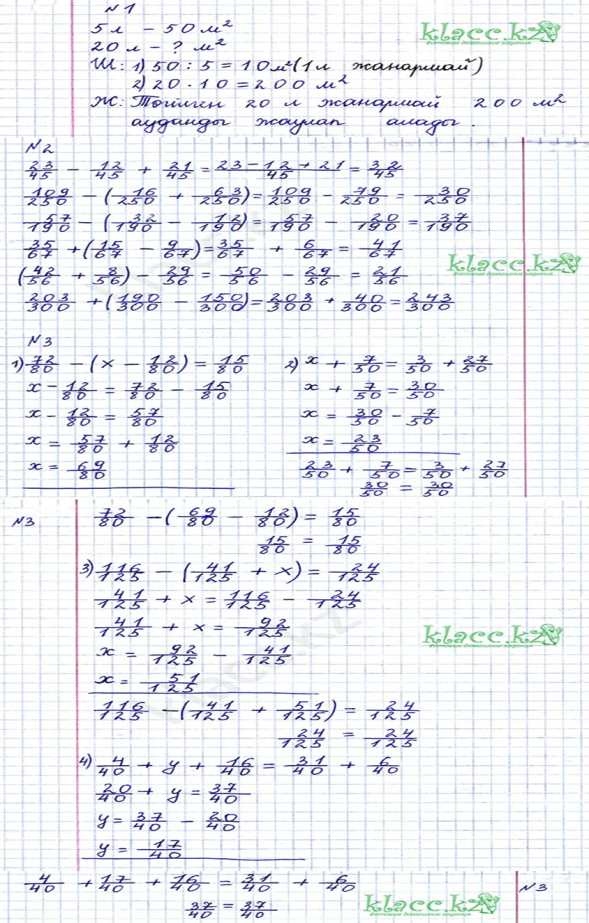 №1
klacc.kz
5 л – 50 м²
20 л – ? м²
Ш: 1) 50 : 5 = 10 м² (1 л жанармай)
2) 20 · 10 = 200 м²
Ж: Төгілген 20 л жанармай 200 м²
ауданды жаулап алады.
№2
23/45 – 12/45 + 21/45 = 23 – 12 + 21/45 = 32/45
109/250 – (16/250 + 63/250) = 109/250 – 79/250 = 30/250
57/190 – (32/190 – 12/190) = 57/190 – 20/190 = 37/190
35/67 + (15/67 – 9/67) = 35/67 + 6/67 = 41/67
klacc.kz
(42/56 + 8/56) – 29/56 = 50/56 – 29/56 = 21/56
203/300 + (190/300 – 150/300) = 203/300 + 40/300 = 243/300
№3
1) 72/80 – (x – 12/80) = 15/80
x – 12/80 = 72/80 – 15/80
x – 12/80 = 57/80
x = 57/80 + 12/80
x = 69/80
2) x + 7/50 = 3/50 + 27/50
x + 7/50 = 30/50
x = 30/50 – 7/50
x = 23/50
23/50 + 7/50 = 3/50 + 27/50
30/50 = 30/50
№3
72/80 – (69/80 – 12/80) = 15/80
15/80 = 15/80
3) 116/125 – (41/125 + x) = 24/125
41/125 + x = 116/125 – 24/125
41/125 + x = 92/125
klacc.kz
x = 92/125 – 41/125
x = 51/125
116/125 – (41/125 + 51/125) = 24/125
24/125 = 24/125
4) 4/40 + y + 16/40 = 31/40 + 6/40
20/40 + y = 37/40
y = 37/40 – 20/40
y = 17/40
4/40 + 17/40 + 16/40 = 31/40 + 6/40
37/40 = 37/40
klacc.kz
№3